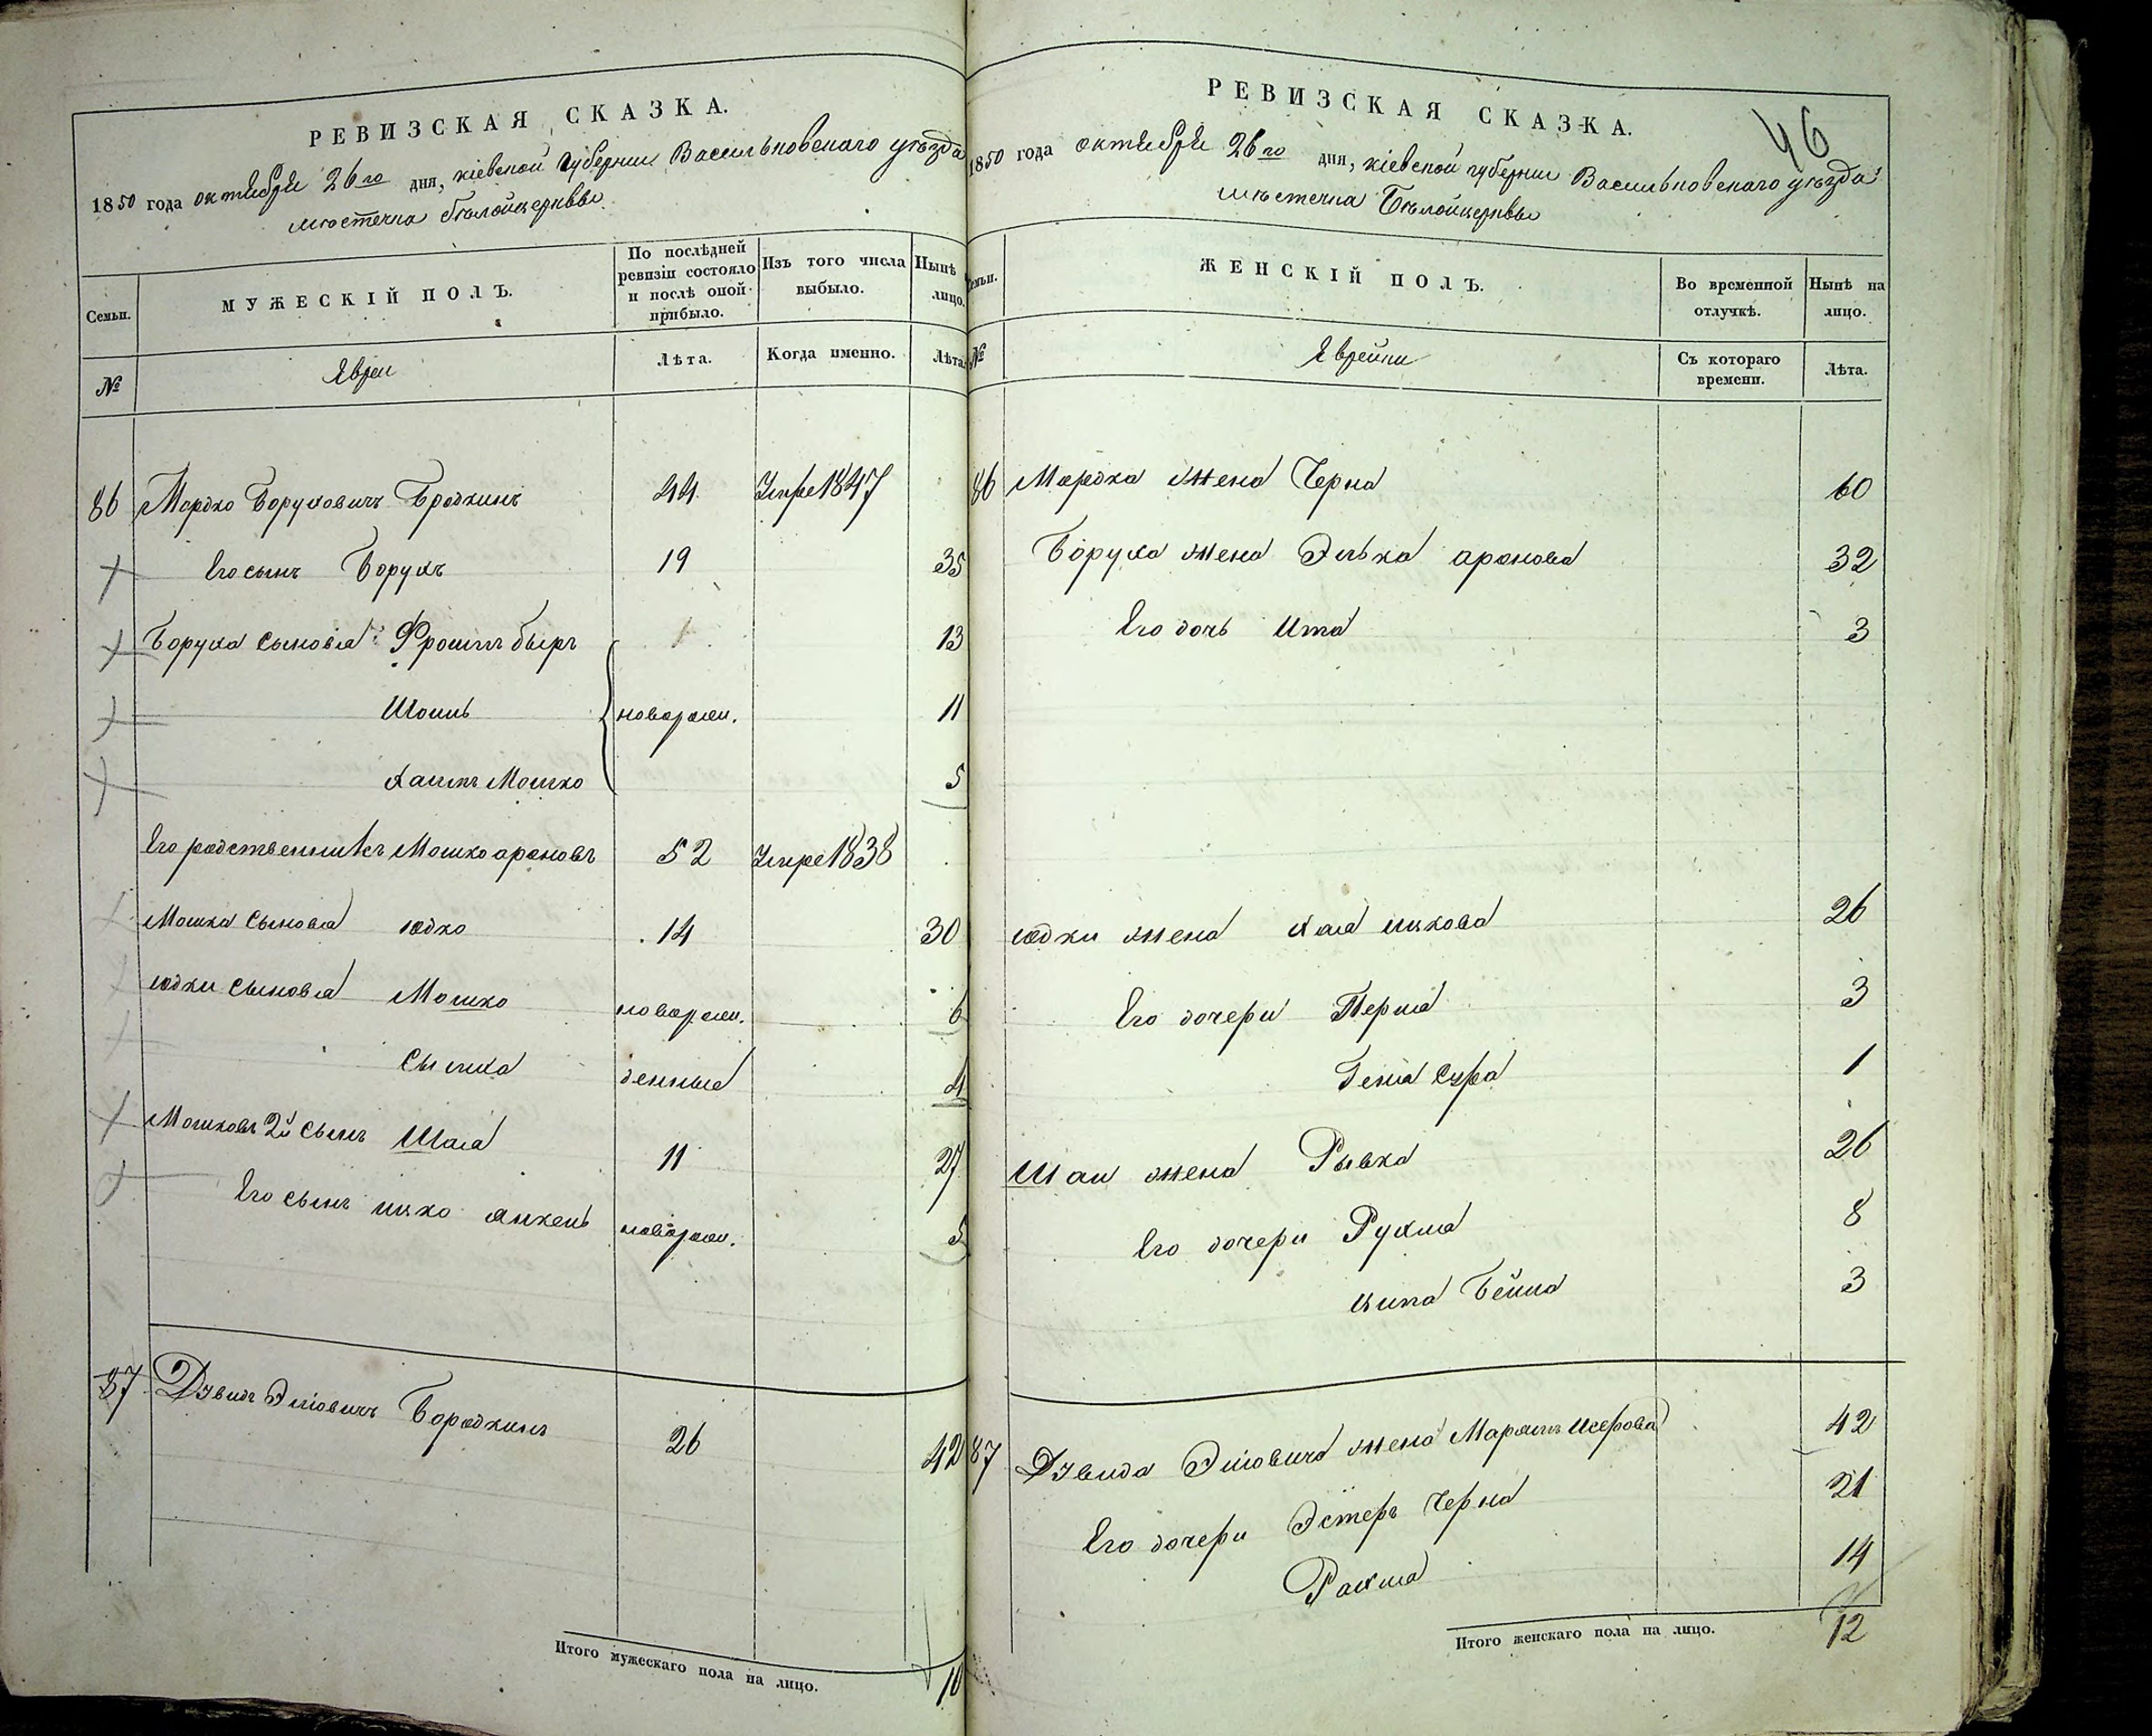 РЕВИЗСКАЯ СКАЗКА.
1850 года октября 26го дня, кіевской губерніи Васильковскаго уѣзда
мѣстечка Бѣлойцерквы
Семьи.
МУЖЕСКІЙ ПОЛЪ.
По послѣдней ревизіи состояло и послѣ оной прибыло.
Изъ того числа выбыло.
Нынѣ лицо.
№
Евреи
Лѣта.
Когда именно.
Лѣта.
86 Мордко Боруховичъ Бродкинъ 44 Умре 1847
Его сынъ Борухъ 19 35
Боруха сыновья: Фроимъ Беръ 13
Шоиль новорожд. 11
Хаимъ Мошко 5
Его родственникъ Мошко ароновъ 52 Умре 1838
Мошка сыновья юдко 14 30
юдки сыновья Мошко новорож. 6
Сымха денные 4
Мошковъ 2й сынъ Шая 11 27
Его сынъ ицко янкель новорож. 5
87 Дывидъ Эліовичъ Бородкинъ 26 42
Итого мужескаго пола на лицо. 10
46
РЕВИЗСКАЯ СКАЗКА.
1850 года октября 26го дня, кіевской губерніи Васильковскаго уѣзда
мѣстечка Бѣлойцерквы
Семьи.
ЖЕНСКІЙ ПОЛЪ.
Во временной отлучкѣ.
Нынѣ на лицо.
№
Еврейки
Съ котораго времени.
Лѣта.
86 Мордка жена Черна 60
Боруха жена Элька аронова 32
Его дочь Ита 3
юдки жена Хая ицкова 26
Его дочери Перля 3
Геня Сура 1
Шаи жена Рывка 26
Его дочери Рухля 8
ципа Бейла 3
87 Дывида Эліовича жена Марьямъ Исерова 42
Его дочери Эстеръ Черна 21
Рахля 14
Итого женскаго пола на лицо. 12